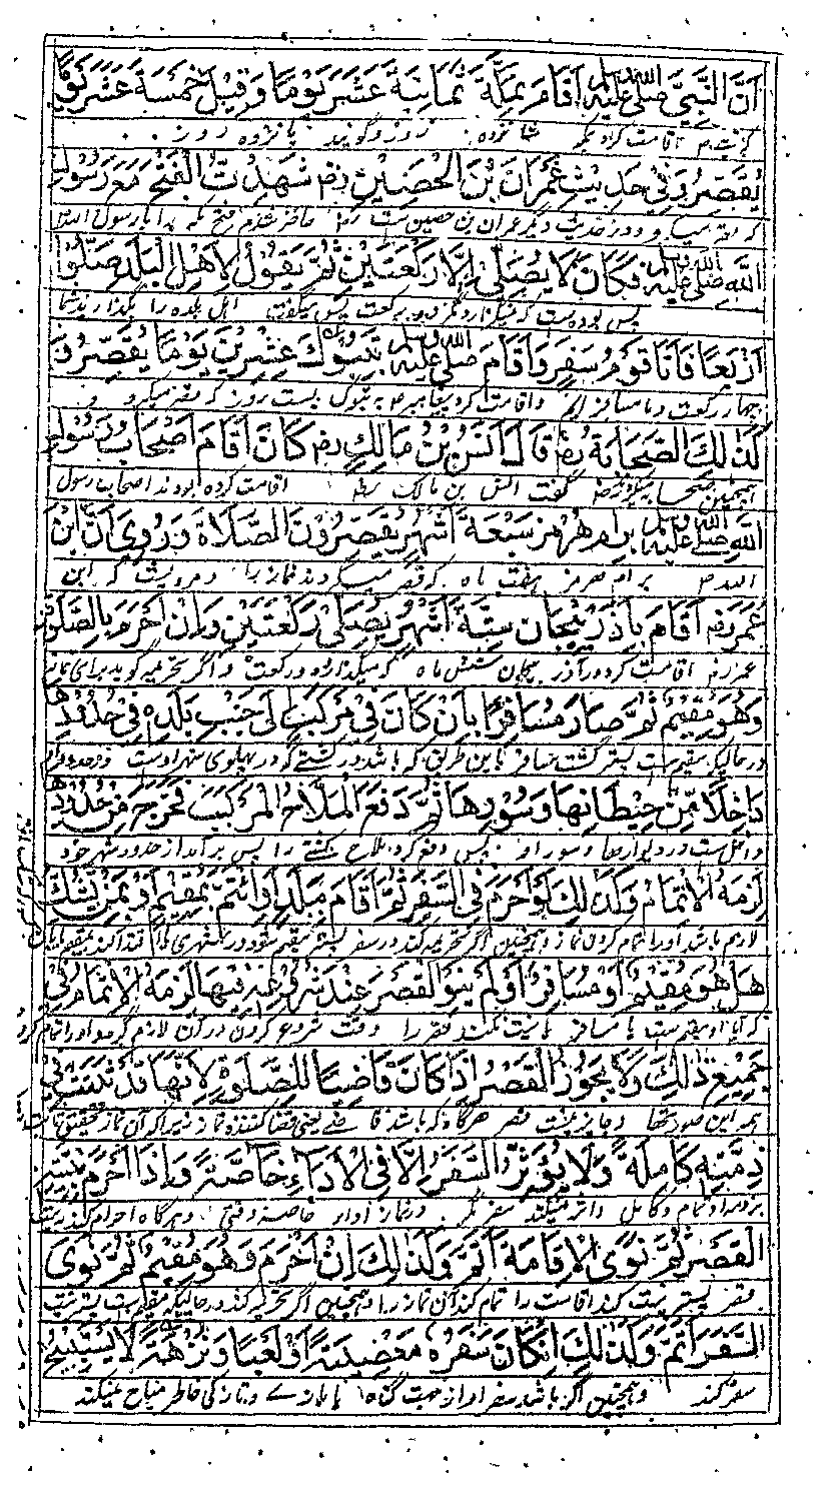 اَنَّ النَّبِيَّ صلى الله عليه وسلم اَقَامَ بِمَكَّةَ ثَمَانِيَةَ عَشَرَ يَوْمًا وَقِيْلَ خَمْسَةَ عَشَرَ يَوْمًا
روز وگويند پانزده روز
يُقَصِّرُ وَفِيْ حَدِيْثِ عِمْرَانَ بْنِ الْحُصَيْنِ رض شَهِدْتُ الْفَتْحَ مَعَ رَسُوْلِ
ودر حديث ديگر عمران بن حصين ست حاضر شدم فتح مكه را با رسول الله
اللهِ صلى الله عليه وسلم فَكَانَ لَا يُصَلِّيْ اِلَّا رَكْعَتَيْنِ ثُمَّ يَقُوْلُ لِاَهْلِ الْبَلَدِ صَلُّوْا
پس بوده است كه نميگزارد مگر دو ركعت پس ميگفت اهل بلده را بگذاريد شما
اَرْبَعًا فَاِنَّا قَوْمٌ سَفَرٌ وَاَقَامَ صلى الله عليه وسلم بِتَبُوْكَ عِشْرِيْنَ يَوْمًا يُقَصِّرُ وَ
چهار ركعت و ما مسافر ايم واقامت كرد پيغامبر به تبوك بيست روز كه قصر ميكرد و
كَذٰلِكَ الصَّحَابَةُ رض قَالَ اَنَسُ بْنُ مَالِكٍ رض كَانَ اَقَامَ اَصْحَابُ رَسُوْلِ
همچنين صحابه گفت انس بن مالك رض اقامت كرده بودند اصحاب رسول
اللهِ صلى الله عليه وسلم بِرَامَ هُرْمُزَ سَبْعَةَ اَشْهُرٍ يُقَصِّرُوْنَ الصَّلَاةَ وَرُوِيَ اَنَّ ابْنَ
الله ص برام هرمز هفت ماه كه قصر ميكردند نماز را ومرويست كه ابن
عُمَرَ رض اَقَامَ بِاٰذَرْبِيْجَانَ سِتَّةَ اَشْهُرٍ يُصَلِّيْ رَكْعَتَيْنِ وَاِنْ اَحْرَمَ بِالصَّلٰوةِ
عمر رض اقامت كرد در آذربيجان شش ماه كه ميگذارد دو ركعت واگر تحريمه گويد براى نماز
وَهُوَ مُقِيْمٌ ثُمَّ صَارَ مُسَافِرًا بِاَنْ كَانَ فِيْ مَرْكَبٍ اِلٰى جَنْبِ بَلَدِهٖ فِيْ حُدُوْدِهَا
در حاليكه مقيم است پستر گشت مسافر باين طريق كه باشد در كشتے كه در پهلوى شهر اوست
دَاخِلًا مِّنْ حِيْطَانِهَا وَسُوْرِهَا ثُمَّ دَفَعَ الْمَلَّاحُ الْمَرْكَبَ فَخَرَجَ مِنْ حُدُوْدِهَا
داخل ست در ديوارها وسور او پس دفع كرد ملاح كشتے را پس برآمد از حدود شهر خود
لَزِمَهُ الْاِتْمَامُ وَكَذٰلِكَ لَوْ اَحْرَمَ فِي السَّفَرِ ثُمَّ اَقَامَ بِبَلَدٍ اَوِ ائْتَمَّ بِمُقِيْمٍ اَوْ بِمَنْ يَّشُكُّ
لازم باشد او را تمام كردن نماز وهمچنين اگر تحريمه كند در سفر پستر مقيم شود در شهرى يا اقتدا كند بمقيم
هَلْ هُوَ مُقِيْمٌ اَوْ مُسَافِرٌ اَوْ لَمْ يَنْوِ الْقَصْرَ عِنْدَ شُرُوْعِهٖ فِيْهَا لَزِمَهُ الْاِتْمَامُ فِيْ
كه آيا او مقيم ست يا مسافر يا نيت نكند قصر را وقت شروع كردن در آن لازم گردد او را تمام كردن
جَمِيْعِ ذٰلِكَ وَلَا يَجُوْزُ الْقَصْرُ اِذَا كَانَ قَاضِيًا لِلصَّلٰوةِ لِاَنَّهَا قَدْ ثَبَتَتْ فِيْ
همه اين صورتها وجايز نيست قصر هرگاه كه باشد قاضے يعنى قضا كننده نماز زيرا كه آن نماز تحقيق
ذِمَّتِهٖ كَامِلَةً وَلَا يُؤَثِّرُ السَّفَرُ اِلَّا فِي الْاَدَاءِ خَاصَّةً وَاِذَا اَحْرَمَ
بر ذمه او تمام وكامل واثر نميكند سفر مگر در نماز ادا خاصة وهرگاه احرام كند
الْقَصْرَ ثُمَّ نَوَى الْاِقَامَةَ اَتَمَّ وَكَذٰلِكَ اِنْ اَحْرَمَ وَهُوَ مُقِيْمٌ ثُمَّ نَوَى
قصر پستر نيت كند اقامت را تمام كند آن نماز را وهمچنين اگر تحريمه كند در حاليكه مقيم است پستر نيت
السَّفَرَ اَتَمَّ وَكَذٰلِكَ اِنْ كَانَ سَفَرُهٗ مَعْصِيَةً اَوْ لَعِبًا وَنُزْهَةً لَا يَسْتَبِيْحُ
سفر كند وهمچنين اگر باشد سفر او از جهت گناه يا بازے وتازگى خاطر مباح نميكند